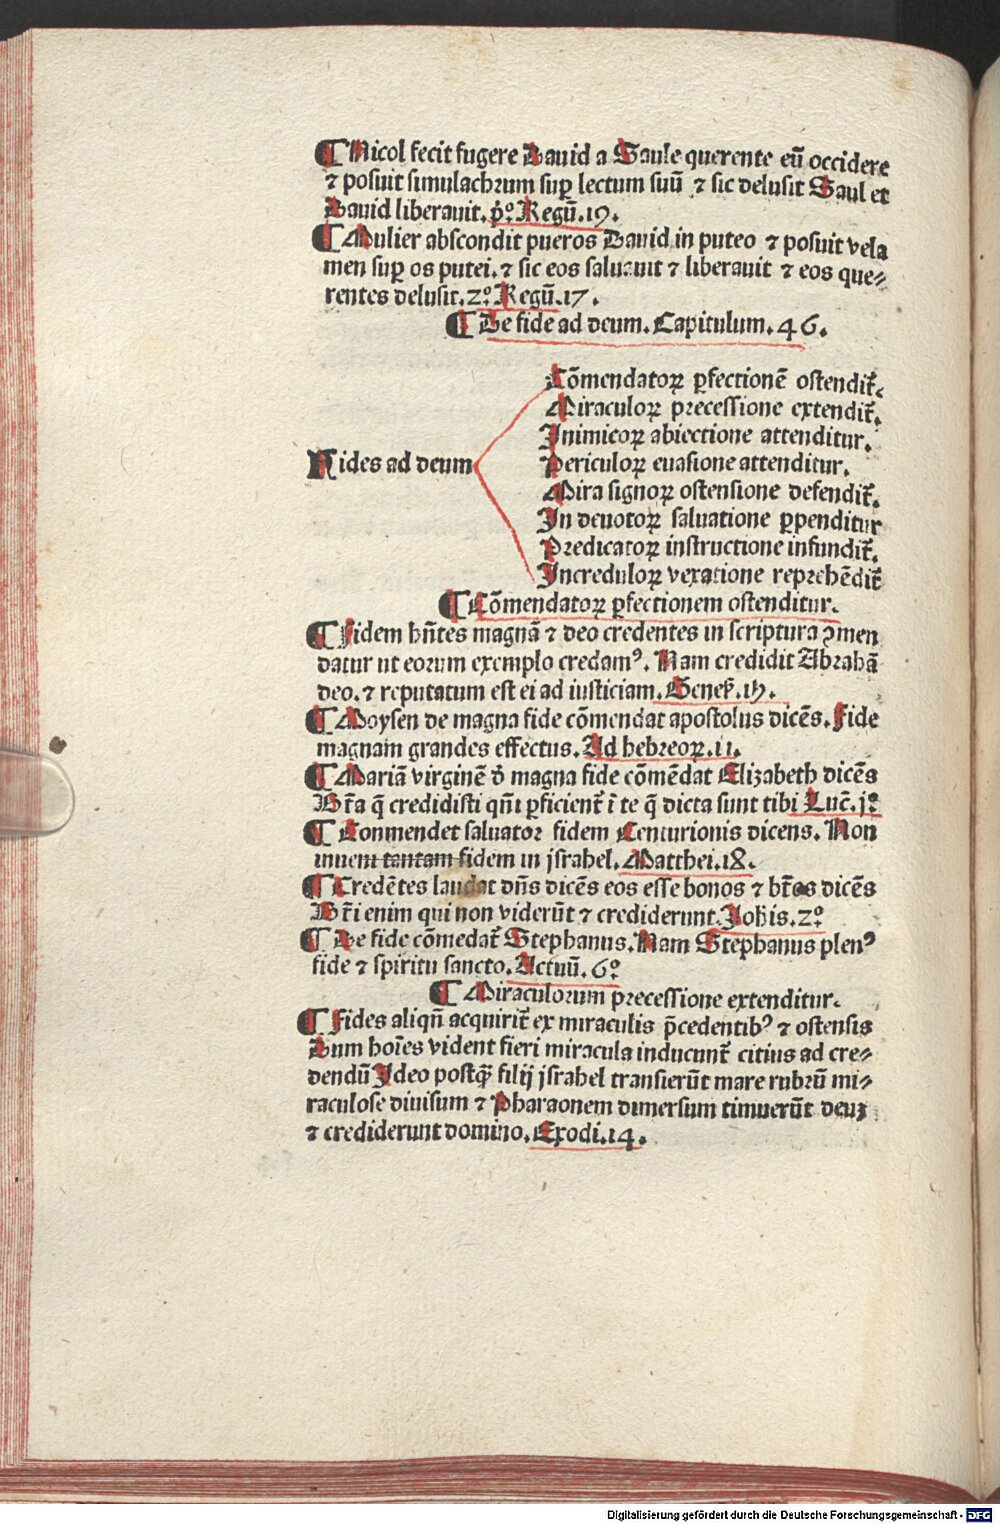 ¶ Micol fecit fugere Dauid a Saule querente eū occidere
⁊ posuit simulachrum suꝑ lectum suū ⁊ sic delusit Saul et
Dauid liberauit. p̊º. Regū. 19.
¶ Mulier abscondit pueros Dauid in puteo ⁊ posuit vela
men suꝑ os putei. ⁊ sic eos saluauit ⁊ liberauit ⁊ eos que⸗
rentes delusit. 2º. Regū. 17.
¶ De fide ad deum. Capitulum. 46.
Cōmendatoꝝ ꝑfectionē ostendit᷑.
Miraculoꝝ precessione extendit᷑.
Inimicoꝝ abiectione attenditur.
Fides ad deum
Periculoꝝ euasione attenditur.
Mira signoꝝ ostensione defendit᷑.
In deuotoꝝ saluatione ꝑpenditur
Predicatoꝝ instructione infundit᷑.
Increduloꝝ vexatione reprehēdit᷑
¶ Cōmendatoꝝ ꝑfectionem ostenditur.
¶ Fidem hn̄tes magnā ⁊ deo credentes in scriptura ꝯmen
datur ut eorum exemplo credamꝰ. Nam credidit Abrahā
deo. ⁊ reputatum est ei ad iusticiam. Genes̄. 15.
¶ Moysen de magna fide cōmendat apostolus dicēs. Fide
magnam grandes effectus. Ad hebreoꝝ. 11.
¶ Mariā virginē d̄ magna fide cōmēdat Elizabeth dicēs
Bt̄a q̄ credidisti qm̄ ꝑficient᷑ ī te q̄ dicta sunt tibi Luc̄. jº
¶ Conmendet saluator fidem Centurionis dicens. Non
inueni tantam fidem in jsrahel. Matthei. 18.
¶ Credētes laudat dn̄s dicēs eos esse bonos ⁊ bt̄os dicēs
Bt̄i enim qui non viderūt ⁊ crediderunt. Johis. 2º
¶ De fide cōmedat᷑ Stephanus. Nam Stephanus plenꝰ
fide ⁊ spiritu sancto. Actuū. 6º
¶ Miraculorum precessione extenditur.
¶ Fides aliqn̄ acquirit᷑ ex miraculis p̄cedentibꝰ ⁊ ostensis
Dum hoīes vident fieri miracula inducunt᷑ citius ad cre⸗
dendū Ideo postq̄ filij jsrahel transierūt mare rubrū mi⸗
raculose diuisum ⁊ Pharaonem dimersum timuerūt deuꝫ
⁊ crediderunt domino. Exodi. 14.
Digitalisierung gefördert durch die Deutsche Forschungsgemeinschaft - DFG